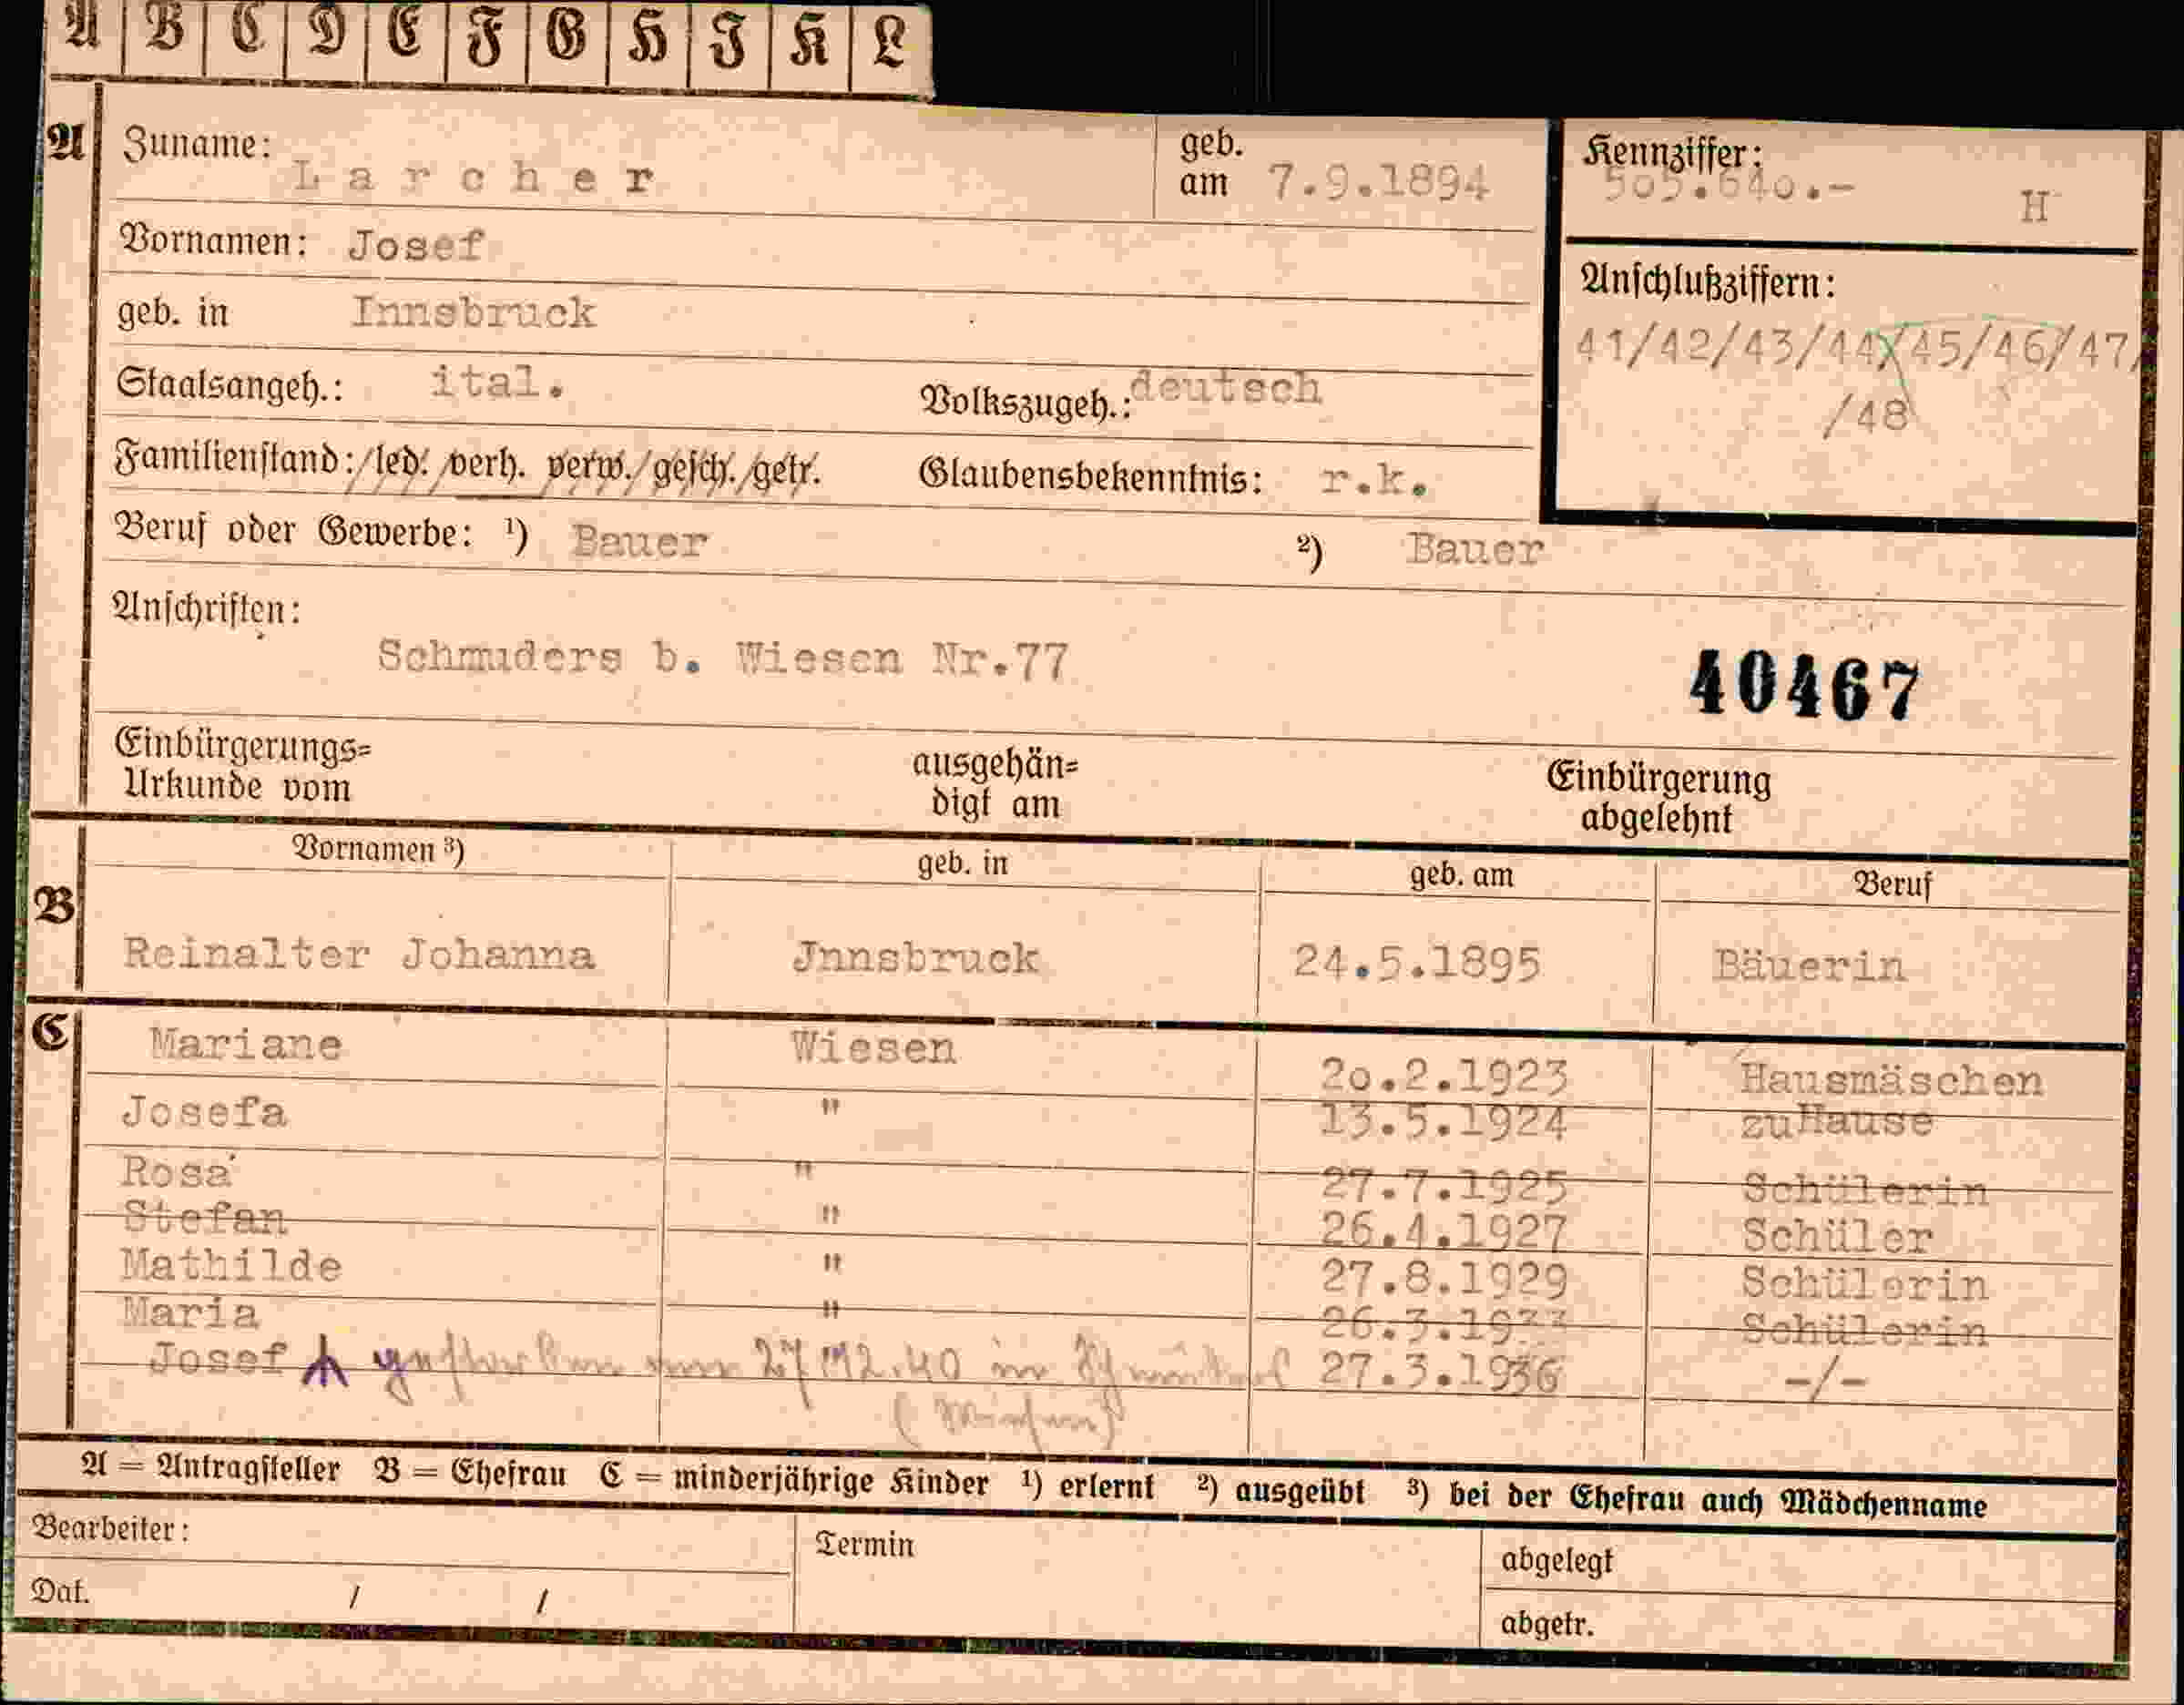 A B C D E F G H I K L
A Zuname: Larcher geb. am 7.9.1894
Kennziffer: 505.640.- H
Vornamen: Josef
geb. in Innsbruck
Anschlußziffern:
41/42/43/44/45/46/47/
/48
Staatsangeh.: ital. Volkszugeh.: deutsch
Familienstand: led. verh. verw. gesch. getr. Glaubensbekenntnis: r.k.
Beruf oder Gewerbe: ¹) Bauer ²) Bauer
Anschriften:
Schmuders b. Wiesen Nr.77
40467
Einbürgerungs= ausgehän= Einbürgerung
Urkunde vom digt am abgelehnt
Vornamen ³) geb. in geb. am Beruf
B
Reinalter Johanna Jnnsbruck 24.5.1895 Bäuerin
C Mariane Wiesen 2o.2.1923 Hausmäschen
Josefa " 13.5.1924 zuHause
Rosa " 27.7.1925 Schülerin
Stefan " 26.4.1927 Schüler
Mathilde " 27.8.1929 Schülerin
Maria " 26.3.1933 Schülerin
Josef gestorben am 27/12.40 in 27.3.1936 -/-
(Wiesen)
A = Antragsteller B = Ehefrau C = minderjährige Kinder ¹) erlernt ²) ausgeübt ³) bei der Ehefrau auch Mädchenname
Bearbeiter: Termin abgelegt
Dat. / / abgetr.